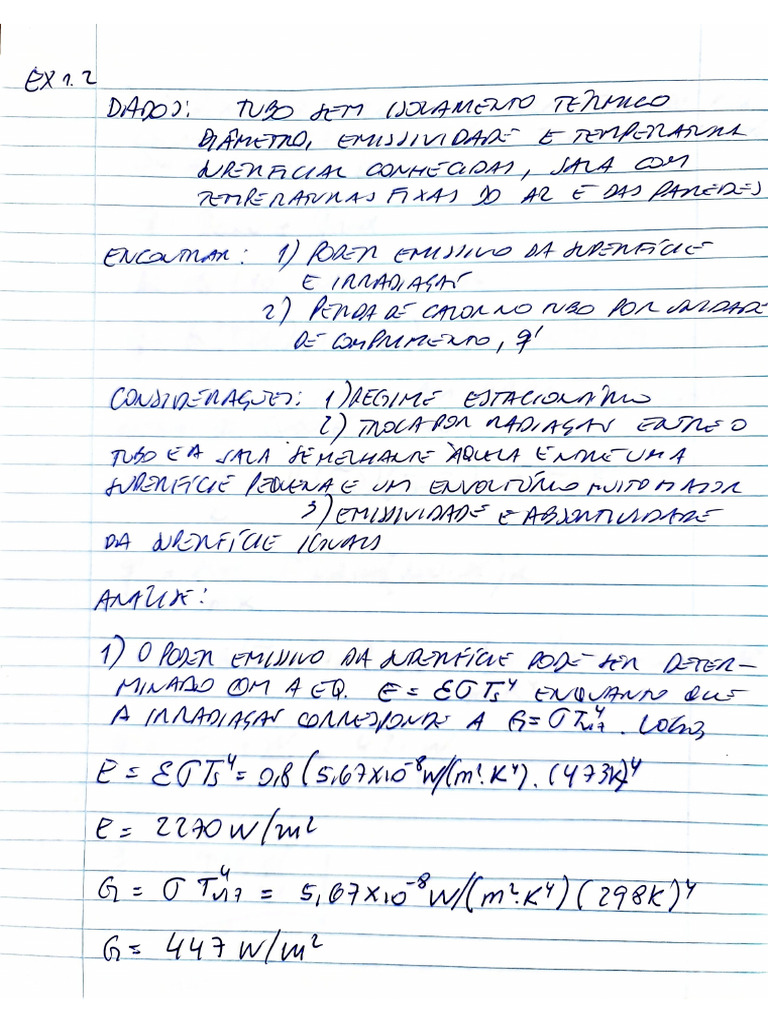 EX 1.2
DADOS: TUBO SEM ISOLAMENTO TÉRMICO
DIÂMETRO, EMISSIVIDADE E TEMPERATURA
SUPERFICIAL CONHECIDAS, SALA COM
TEMPERATURAS FIXAS DO AR E DAS PAREDES
ENCONTRAR: 1) PODER EMISSIVO DA SUPERFÍCIE
E IRRADIAÇÃO
2) PERDA DE CALOR NO TUBO POR UNIDADE
DE COMPRIMENTO, q'
CONSIDERAÇÕES: 1) REGIME ESTACIONÁRIO
2) TROCA POR RADIAÇÃO ENTRE O
TUBO E A SALA SEMELHANTE ÀQUELA ENTRE UMA
SUPERFÍCIE PEQUENA E UM ENVOLTÓRIO MUITO MAIOR
3) EMISSIVIDADE E ABSORTIVIDADE
DA SUPERFÍCIE IGUAIS
ANÁLISE:
1) O PODER EMISSIVO DA SUPERFÍCIE PODE SER DETER-
MINADO COM A EQ. E = εσTs⁴ ENQUANTO QUE
A IRRADIAÇÃO CORRESPONDE A G = σTviz⁴. LOGO,
E = εσTs⁴ = 0,8 (5,67x10⁻⁸ W/(m².K⁴). (473K)⁴
E = 2270 W/m²
G = σ Tviz⁴ = 5,67x10⁻⁸ W/(m².K⁴) (298K)⁴
G = 447 W/m²